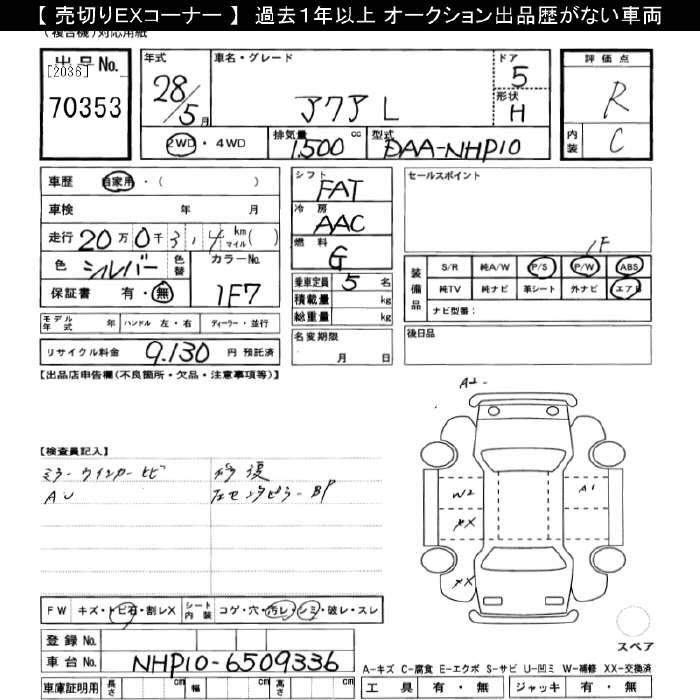 【 売切りEXコーナー 】 過去1年以上 オークション出品歴がない車両
(複合機)対応用紙
出品No. [2036] 70353
年式 28/5月
車名・グレード アクア L
ドア 5
形状 H
2WD・4WD
排気量 1500 cc
型式 DAA-NHP10
評価点 R
内装 C
車歴 自家用・( )
車検 年 月
走行 20万0千314 km マイル( )
色 シルバー 色替 カラーNo. 1F7
保証書 有・無
シフト FAT
冷房 AAC
燃料 G
乗車定員 5名
積載量 kg
総重量 kg
セールスポイント
1F
装備品 S/R 純A/W P/S P/W ABS
純TV 純ナビ 革シート 外ナビ エアB
ナビ型番:
モデル年式 年 ハンドル 左・右 ディーラー・並行
リサイクル料金 9.130 円 預託済
名変期限 月 日
後日品
【出品店申告欄(不良箇所・欠品・注意事項等)】
【検査員記入】
ミラーウインカーヒビ 修復
AU 左センタピラーBP
A2
W2 A1
XX
XX
FW キズ・トビ石・割レX シート内装 コゲ・穴・汚レ・シミ・破レ・スレ
スペア
登録No.
車台No. NHP10-6509336
A-キズ C-腐食 E-エクボ S-サビ U-凹ミ W-補修 XX-交換済
車庫証明用 長さ cm 幅 cm 高さ cm
工具 有・無 ジャッキ 有・無